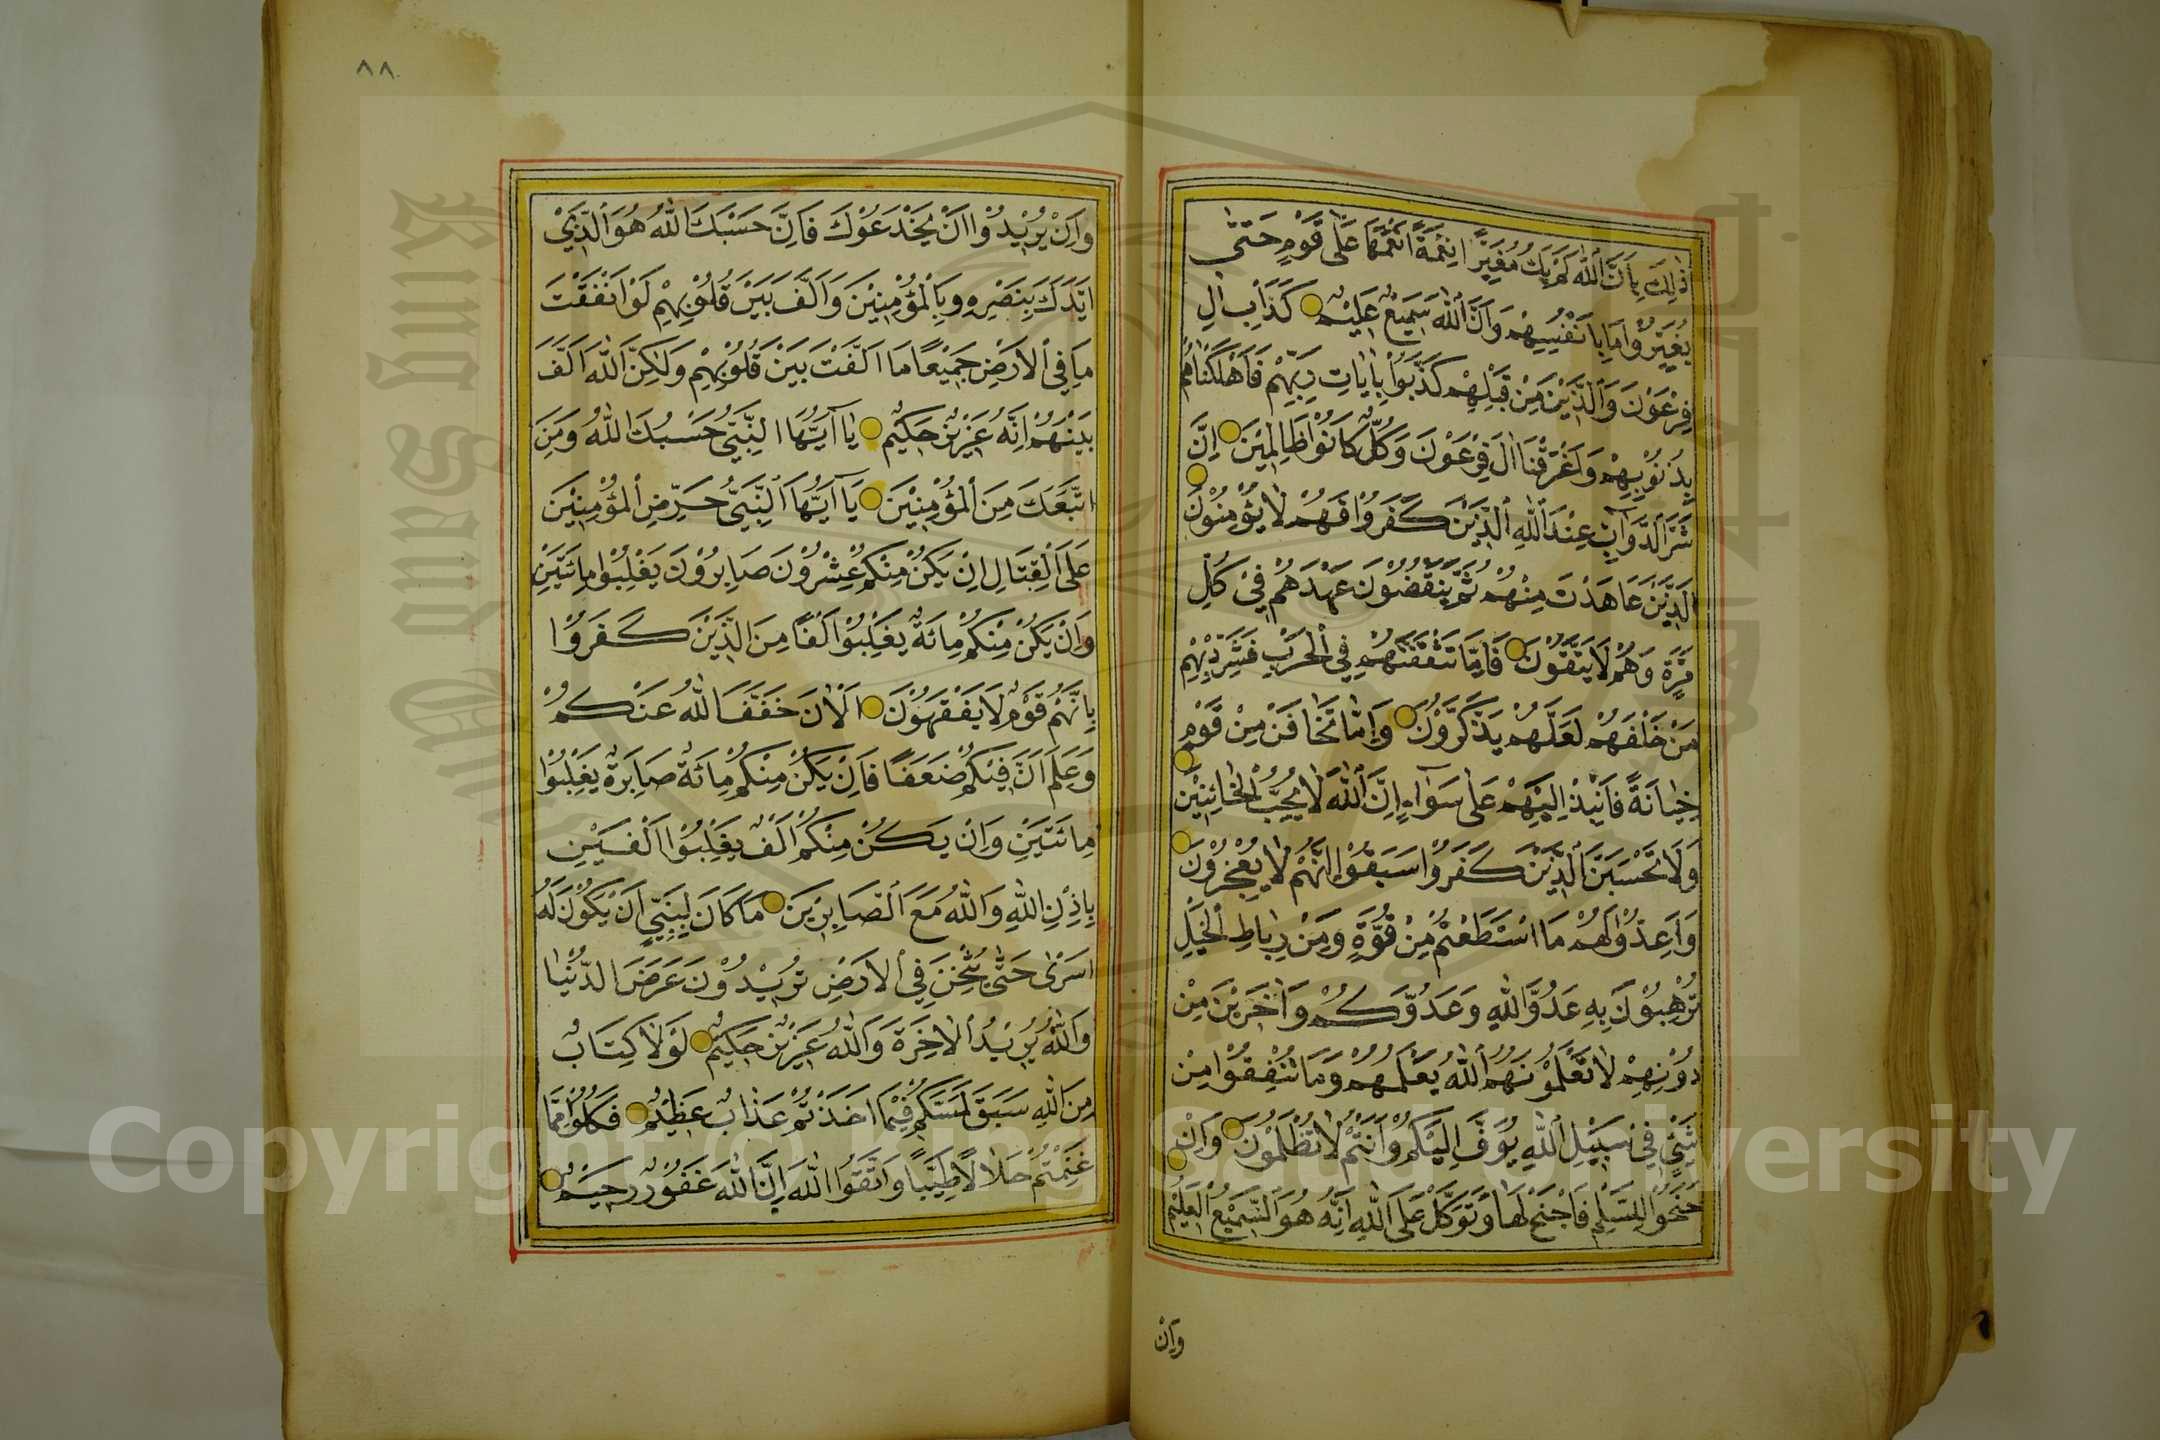 ذٰلِكَ بِاَنَّ اللّٰهَ لَمْ يَكُ مُغَيِّرًا نِعْمَةً اَنْعَمَهَا عَلٰى قَوْمٍ حَتّٰى
يُغَيِّرُوْا مَا بِاَنْفُسِهِمْ وَاَنَّ اللّٰهَ سَمِيْعٌ عَلِيْمٌ كَدَاْبِ اٰلِ
فِرْعَوْنَ وَالَّذِيْنَ مِنْ قَبْلِهِمْ كَذَّبُوْا بِاٰيَاتِ رَبِّهِمْ فَاَهْلَكْنَاهُمْ
بِذُنُوْبِهِمْ وَاَغْرَقْنَا اٰلَ فِرْعَوْنَ وَكُلٌّ كَانُوْا ظَالِمِيْنَ اِنَّ
شَرَّ الدَّوَآبِّ عِنْدَ اللّٰهِ الَّذِيْنَ كَفَرُوْا فَهُمْ لَا يُؤْمِنُوْنَ
اَلَّذِيْنَ عَاهَدْتَ مِنْهُمْ ثُمَّ يَنْقُضُوْنَ عَهْدَهُمْ فِيْ كُلِّ
مَرَّةٍ وَهُمْ لَا يَتَّقُوْنَ فَاِمَّا تَثْقَفَنَّهُمْ فِي الْحَرْبِ فَشَرِّدْ بِهِمْ
مَنْ خَلْفَهُمْ لَعَلَّهُمْ يَذَّكَّرُوْنَ وَاِمَّا تَخَافَنَّ مِنْ قَوْمٍ
خِيَانَةً فَانْبِذْ اِلَيْهِمْ عَلٰى سَوَآءٍ اِنَّ اللّٰهَ لَا يُحِبُّ الْخَائِنِيْنَ
وَلَا تَحْسَبَنَّ الَّذِيْنَ كَفَرُوْا سَبَقُوْا اِنَّهُمْ لَا يُعْجِزُوْنَ
وَاَعِدُّوْا لَهُمْ مَا اسْتَطَعْتُمْ مِنْ قُوَّةٍ وَمِنْ رِبَاطِ الْخَيْلِ
تُرْهِبُوْنَ بِهِ عَدُوَّ اللّٰهِ وَعَدُوَّكُمْ وَاٰخَرِيْنَ مِنْ
دُوْنِهِمْ لَا تَعْلَمُوْنَهُمُ اللّٰهُ يَعْلَمُهُمْ وَمَا تُنْفِقُوْا مِنْ
شَيْئٍ فِيْ سَبِيْلِ اللّٰهِ يُوَفَّ اِلَيْكُمْ وَاَنْتُمْ لَا تُظْلَمُوْنَ وَاِنْ
جَنَحُوْا لِلسَّلْمِ فَاجْنَحْ لَهَا وَتَوَكَّلْ عَلَى اللّٰهِ اِنَّهُ هُوَ السَّمِيْعُ الْعَلِيْمُ
وَاِنْ
٨٨
وَاِنْ يُرِيْدُوْا اَنْ يَخْدَعُوْكَ فَاِنَّ حَسْبَكَ اللّٰهُ هُوَ الَّذِيْ
اَيَّدَكَ بِنَصْرِهِ وَبِالْمُؤْمِنِيْنَ وَاَلَّفَ بَيْنَ قُلُوْبِهِمْ لَوْ اَنْفَقْتَ
مَا فِي الْاَرْضِ جَمِيْعًا مَا اَلَّفْتَ بَيْنَ قُلُوْبِهِمْ وَلٰكِنَّ اللّٰهَ اَلَّفَ
بَيْنَهُمْ اِنَّهُ عَزِيْزٌ حَكِيْمٌ يَا اَيُّهَا النَّبِيُّ حَسْبُكَ اللّٰهُ وَمَنِ
اتَّبَعَكَ مِنَ الْمُؤْمِنِيْنَ يَآ اَيُّهَا النَّبِيُّ حَرِّضِ الْمُؤْمِنِيْنَ
عَلَى الْقِتَالِ اِنْ يَكُنْ مِنْكُمْ عِشْرُوْنَ صَابِرُوْنَ يَغْلِبُوْا مِائَتَيْنِ
وَاِنْ يَكُنْ مِنْكُمْ مِائَةٌ يَغْلِبُوْا اَلْفًا مِنَ الَّذِيْنَ كَفَرُوْا
بِاَنَّهُمْ قَوْمٌ لَا يَفْقَهُوْنَ اَلْاٰنَ خَفَّفَ اللّٰهُ عَنْكُمْ
وَعَلِمَ اَنَّ فِيْكُمْ ضَعَفًا فَاِنْ يَكُنْ مِنْكُمْ مِائَةٌ صَابِرَةٌ يَغْلِبُوْا
مِائَتَيْنِ وَاِنْ يَكُنْ مِنْكُمْ اَلْفٌ يَغْلِبُوْا اَلْفَيْنِ
بِاِذْنِ اللّٰهِ وَاللّٰهُ مَعَ الصَّابِرِيْنَ مَا كَانَ لِنَبِيٍّ اَنْ يَكُوْنَ لَهُ
اَسْرٰى حَتّٰى يُثْخِنَ فِي الْاَرْضِ تُرِيْدُوْنَ عَرَضَ الدُّنْيَا
وَاللّٰهُ يُرِيْدُ الْاٰخِرَةَ وَاللّٰهُ عَزِيْزٌ حَكِيْمٌ لَوْلَا كِتَابٌ
مِنَ اللّٰهِ سَبَقَ لَمَسَّكُمْ فِيْمَا اَخَذْتُمْ عَذَابٌ عَظِيْمٌ فَكُلُوْا مِمَّا
غَنِمْتُمْ حَلَالًا طَيِّبًا وَاتَّقُوا اللّٰهَ اِنَّ اللّٰهَ غَفُوْرٌ رَحِيْمٌ
King Saud University
Copyright © King Saud University